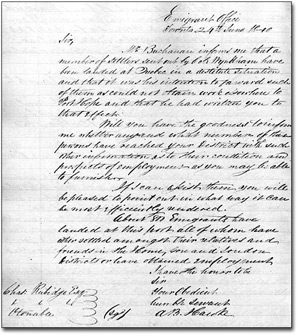 Emigrant Office
Toronto 24th June 1840
Sir,
Mr Buchanan informs me that a
number of settlers sent out by Col. Wyndham have
been landed at Quebec in a destitute situation
and that it was his intention to forward such
of them as could not obtain work elsewhere to
Port Hope and that he had written you to
that effect.
Will you have the goodness to inform
me whether any and what number of these
persons have reached your District with such
other information as to their condition and
prospects of employment as you may be able
to furnish.
If I can assist them you will
be pleased to point out in what way it can
be most efficiently rendered.
About Emigrants have
landed at this port all of whom have
either settled amongst their relatives and
friends in the Home, Gore and London
Districts or have obtained employment.
I have the honor to be
Sir
Your Obedient
humble Servant
A B. Hawke
Chas Rubidge Esq
Otonabee